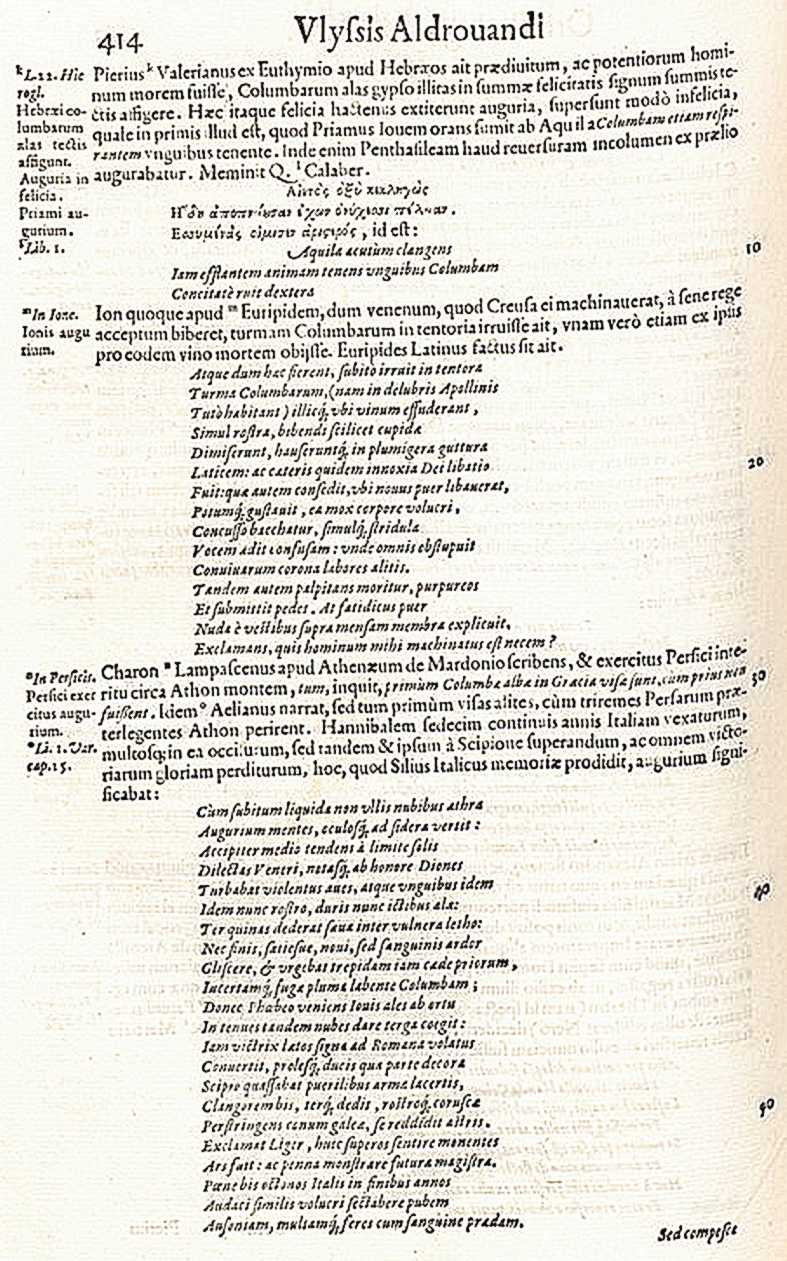 414
Vlyssis Aldrouandi
k L. 22. Hie
rogl.
Hebræi co-
lumbarum
alas tectis
affigunt.
Auguria in
felicia.
Priami au-
gurium.
l Lib. 1.
Pierius k Valerianus ex Euthymio apud Hebræos ait prædiuitum, ac potentiorum homi-
num morem fuisse, Columbarum alas gypso illitas in summæ felicitatis signum summis te-
ctis affigere. Hæc itaque felicia hactenus extiterunt auguria, supersunt modò infelicia,
quale in primis illud est, quod Priamus Iouem orans sumit ab Aquila Columbam etiam respi-
rantem vnguibus tenente. Inde enim Penthasileam haud reuersuram incolumen ex prælio
augurabatur. Meminit Q. l Calaber.
, id est:
Aquila acutùm clangens
10
Iam efflantem animam tenens vnguibus Columbam
Concitatè ruit dextera
m In Ione.
Ionis augu
rium.
Ion quoque apud m Euripidem, dum venenum, quod Creusa ei machinauerat, à sene rege
acceptum biberet, turmam Columbarum in tentoria irruisse ait, vnam verò etiam ex ipsis
pro eodem vino mortem obijsse. Euripides Latinus factus sit ait.
Atque dum hæc fierent, subitò irruit in tentora
Turma Columbarum, (nam in delubris Apollinis
Tutò habitant) illicq́; vbi vinum effuderant,
Simul rostra, bibendi scilicet cupida
Dimiserunt, hauseruntq́; in plumigera guttura
20
Laticem: ac cæteris quidem innoxia Dei libatio
Fuit: quæ autem consedit, vbi nouus puer libauerat,
Potumq́; gustauit, ea mox corpore volucri,
Concusso bacchatur, simulq́; stridula
Vocem adit confusam: vnde omnis obstupuit
Conuiuarum corona labores alitis.
Tandem autem palpitans moritur, purpureos
Et submittit pedes. At fatidicus puer
Nuda è vestibus supra mensam membra explicuit,
Exclamans, quis hominum mihi machinatus est necem?
n In Persicis.
Persici exer
citus augu-
rium.
o Li. 1. Var.
cap. 15.
Charon n Lampascenus apud Athenæum de Mardonio scribens, & exercitus Persici inte-
ritu circa Athon montem, tum, inquit, primùm Columbæ albæ in Græcia visæ sunt, cùm prius non
30
fuissent. Idem o Aelianus narrat, sed tum primùm visas alites, cùm triremes Persarum præ-
terlegentes Athon perirent. Hannibalem sedecim continuis annis Italiam vexaturum,
multosq; in ea occisurum, sed tandem & ipsum à Scipione superandum, ac omnem victo-
riarum gloriam perditurum, hoc, quod Silius Italicus memoriæ prodidit, augurium signi-
ficabat:
Cùm subitum liquida non vllis nubibus æthra
Augurium mentes, oculosq́; ad sidera vertit:
Accipiter medio tendens à limite solis
Dilectas Veneri, notasq́; ab honore Diones
Turbabat violentus aues, atque vnguibus idem
40
Idem nunc rostro, duris nunc ictibus alæ:
Ter quinas dederat sæua inter vulnera letho:
Nec finis, satiesue, noui, sed sanguinis ardor
Gliscere, & vrgebat trepidam iam cæde priorum,
Incertamq́; fuga pluma labente Columbam;
Donec Phœbeo veniens Iouis ales ab ortu
In tenues tandem nubes dare terga coegit:
Iam victrix lætos signa ad Romana volatus
Conuertit, prolesq́; ducis qua parte decora
Scipio quassabat puerilibus arma lacertis,
Clangorem bis, terq́; dedit, rostroq́; coruscæ
50
Perstringens conum galeæ, se reddidit astris.
Exclamat Liger, huic superos sentire monentes
Ars fuit: ac penna monstrare futura magistra.
Pœne bis octonos Italis in finibus annos
Audaci similis volucri sectabere pubem
Ausoniam, multamq́; feres cum sanguine prædam.
Sed compesce